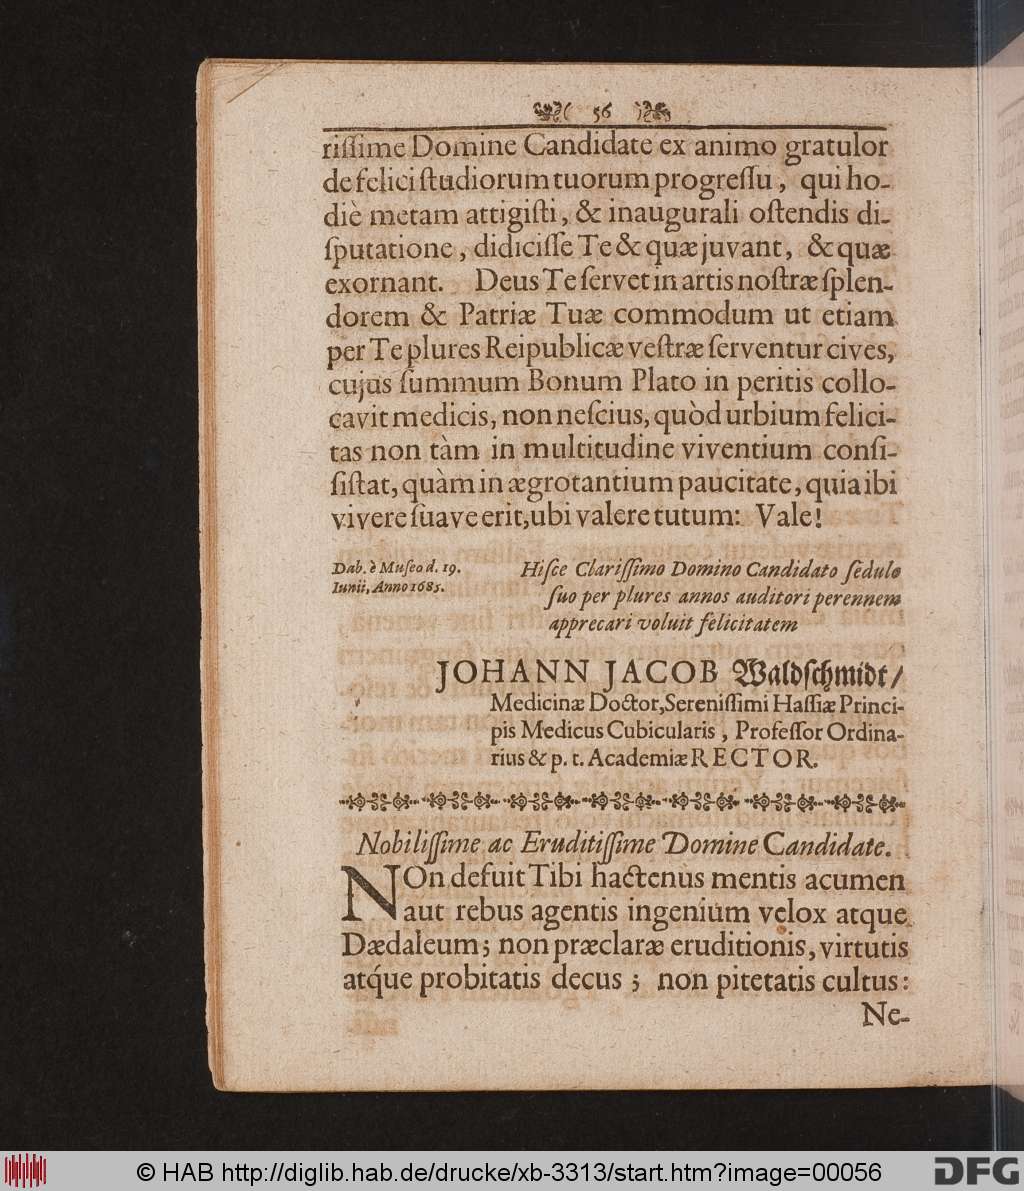 56
rissime Domine Candidate ex animo gratulor
de felici studiorum tuorum progressu, qui ho-
diè metam attigisti, & inaugurali ostendis di-
sputatione, didicisse Te & quæ juvant, & quæ
exornant. Deus Te servet in artis nostræ splen-
dorem & Patriæ Tuæ commodum ut etiam
per Te plures Reipublicæ vestræ serventur cives,
cujus summum Bonum Plato in peritis collo-
cavit medicis, non nescius, quòd urbium felici-
tas non tàm in multitudine viventium consi-
sistat, quàm in ægrotantium paucitate, quia ibi
vivere suave erit, ubi valere tutum: Vale!
Dab. è Museo d. 19.
Iunii, Anno 1685.
Hisce Clarissimo Domino Candidato sedulo
suo per plures annos auditori perennem
apprecari voluit felicitatem
JOHANN JACOB Waldschmidt/
Medicinæ Doctor, Serenissimi Hassiæ Princi-
pis Medicus Cubicularis, Professor Ordina-
rius & p. t. Academiæ RECTOR.
Nobilissime ac Eruditissime Domine Candidate.
NOn defuit Tibi hactenus mentis acumen
aut rebus agentis ingenium velox atque
Dædaleum; non præclaræ eruditionis, virtutis
atq́ue probitatis decus; non pitetatis cultus:
Ne-
© HAB http://diglib.hab.de/drucke/xb-3313/start.htm?image=00056
DFG